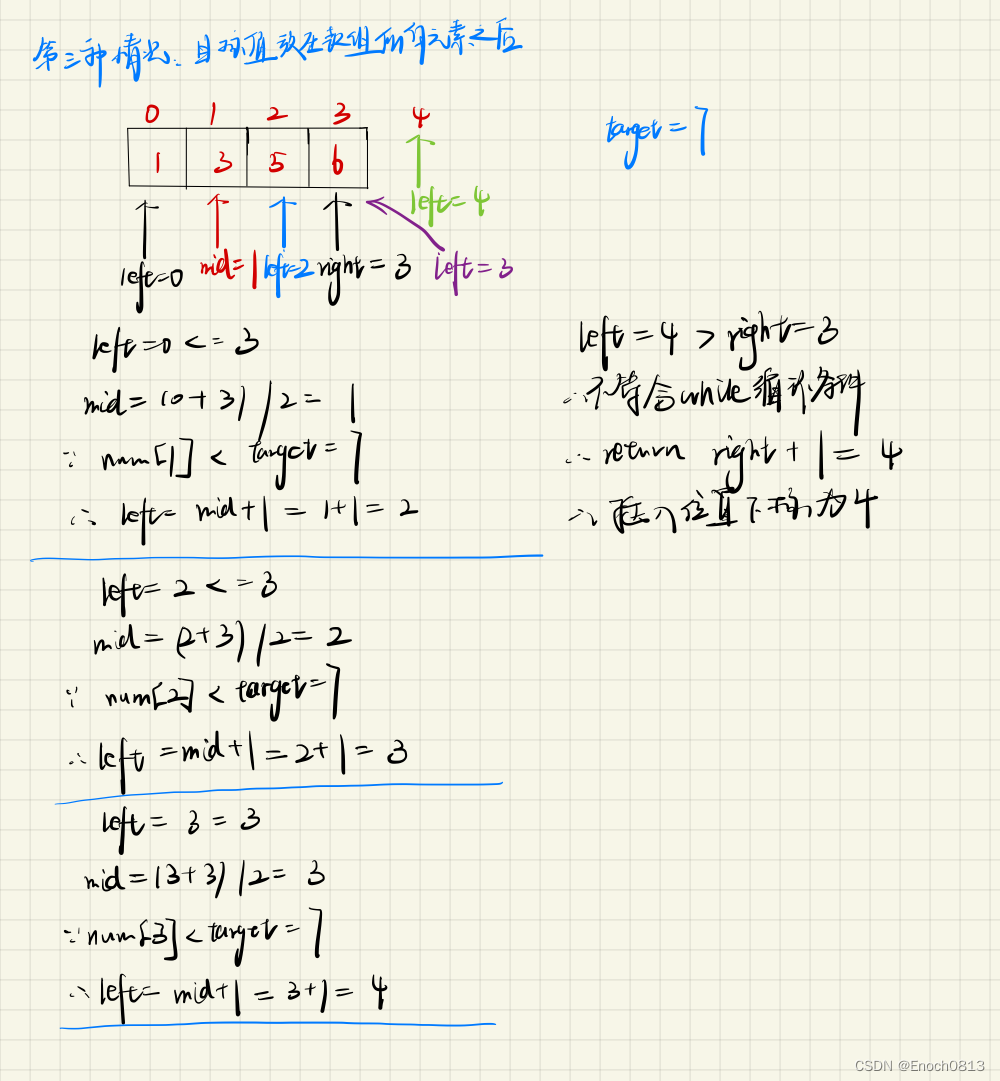 第三种情况：目标值放在数组所有元素之后
0 1 2 3 4
target = 7
1 3 5 6
left = 4
left=0 mid=1 left=2 right = 3 left = 3
left =0 <= 3
mid = (0 + 3) / 2 = 1
∵ num[1] < target = 7
∴ left = mid+1 = 1+1 = 2
left = 2 <= 3
mid = (2+3) / 2 = 2
∵ num[2] < target = 7
∴ left = mid+1 = 2+1 = 3
left = 3 = 3
mid = (3+3) / 2 = 3
∵ num[3] < target = 7
∴ left = mid+1 = 3+1 = 4
left = 4 > right = 3
∴ 不符合while循环条件
∴ return right + 1 = 4
∴ 插入位置下标为4
CSDN @Enoch0813